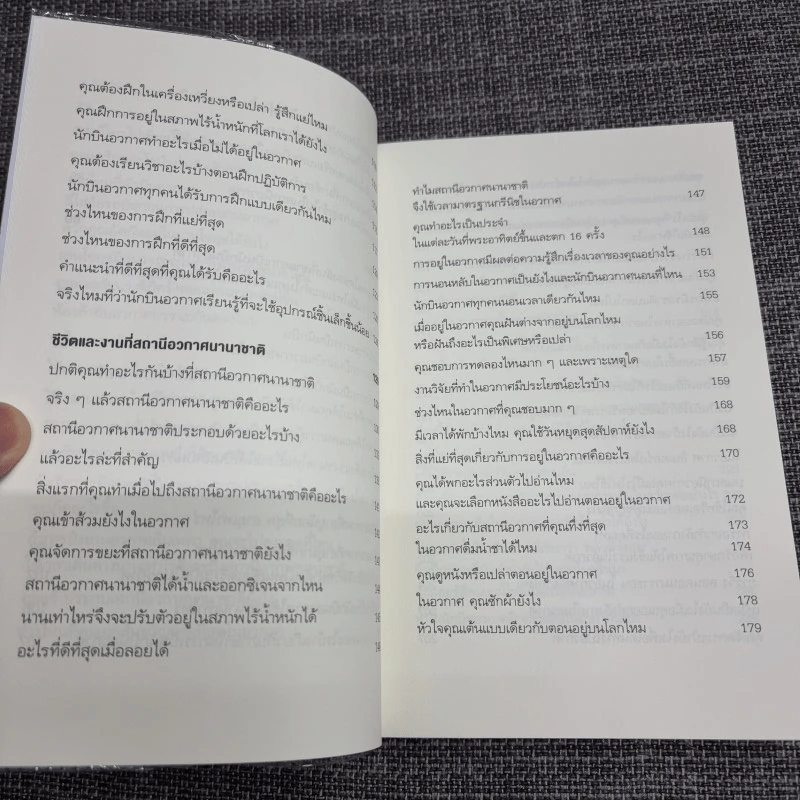 คุณต้องฝึกในเครื่องเหวี่ยงหรือเปล่า รู้สึกแย่ไหม
คุณฝึกการอยู่ในสภาพไร้น้ำหนักที่โลกเราได้ยังไง
นักบินอวกาศทำอะไรเมื่อไม่ได้อยู่ในอวกาศ
คุณต้องเรียนวิชาอะไรบ้างตอนฝึกปฏิบัติการ
นักบินอวกาศทุกคนได้รับการฝึกแบบเดียวกันไหม
ช่วงไหนของการฝึกที่แย่ที่สุด
ช่วงไหนของการฝึกที่ดีที่สุด
คำแนะนำที่ดีที่สุดที่คุณได้รับคืออะไร
จริงไหมที่ว่านักบินอวกาศเรียนรู้ที่จะใช้อุปกรณ์ชิ้นเล็กชิ้นน้อย
ชีวิตและงานที่สถานีอวกาศนานาชาติ
ปกติคุณทำอะไรกันบ้างที่สถานีอวกาศนานาชาติ
จริง ๆ แล้วสถานีอวกาศนานาชาติคืออะไร
สถานีอวกาศนานาชาติประกอบด้วยอะไรบ้าง
แล้วอะไรล่ะที่สำคัญ
สิ่งแรกที่คุณทำเมื่อไปถึงสถานีอวกาศนานาชาติคืออะไร
คุณเข้าส้วมยังไงในอวกาศ
คุณจัดการขยะที่สถานีอวกาศนานาชาติยังไง
สถานีอวกาศนานาชาติได้น้ำและออกซิเจนจากไหน
นานเท่าไหร่จึงจะปรับตัวอยู่ในสภาพไร้น้ำหนักได้
อะไรที่ดีที่สุดเมื่อลอยได้
ทำไมสถานีอวกาศนานาชาติ
จึงใช้เวลามาตรฐานกรีนิชในอวกาศ 147
คุณทำอะไรเป็นประจำ
ในแต่ละวันที่พระอาทิตย์ขึ้นและตก 16 ครั้ง 148
การอยู่ในอวกาศมีผลต่อความรู้สึกเรื่องเวลาของคุณอย่างไร 151
การนอนหลับในอวกาศเป็นยังไงและนักบินอวกาศนอนที่ไหน 153
นักบินอวกาศทุกคนนอนเวลาเดียวกันไหม 155
เมื่ออยู่ในอวกาศคุณฝันต่างจากอยู่บนโลกไหม
หรือฝันถึงอะไรเป็นพิเศษหรือเปล่า 156
คุณชอบการทดลองไหนมาก ๆ และเพราะเหตุใด 157
งานวิจัยที่ทำในอวกาศมีประโยชน์อะไรบ้าง 159
ช่วงไหนในอวกาศที่คุณชอบมาก ๆ 168
มีเวลาได้พักบ้างไหม คุณใช้วันหยุดสุดสัปดาห์ยังไง 168
สิ่งที่แย่ที่สุดเกี่ยวกับการอยู่ในอวกาศคืออะไร 170
คุณได้พกอะไรส่วนตัวไปอ่านไหม
และคุณจะเลือกหนังสืออะไรไปอ่านตอนอยู่ในอวกาศ 172
อะไรเกี่ยวกับสถานีอวกาศที่คุณทึ่งที่สุด 173
ในอวกาศดื่มน้ำชาได้ไหม 174
คุณดูหนังหรือเปล่าตอนอยู่ในอวกาศ 176
ในอวกาศ คุณซักผ้ายังไง 178
หัวใจคุณเต้นแบบเดียวกับตอนอยู่บนโลกไหม 179